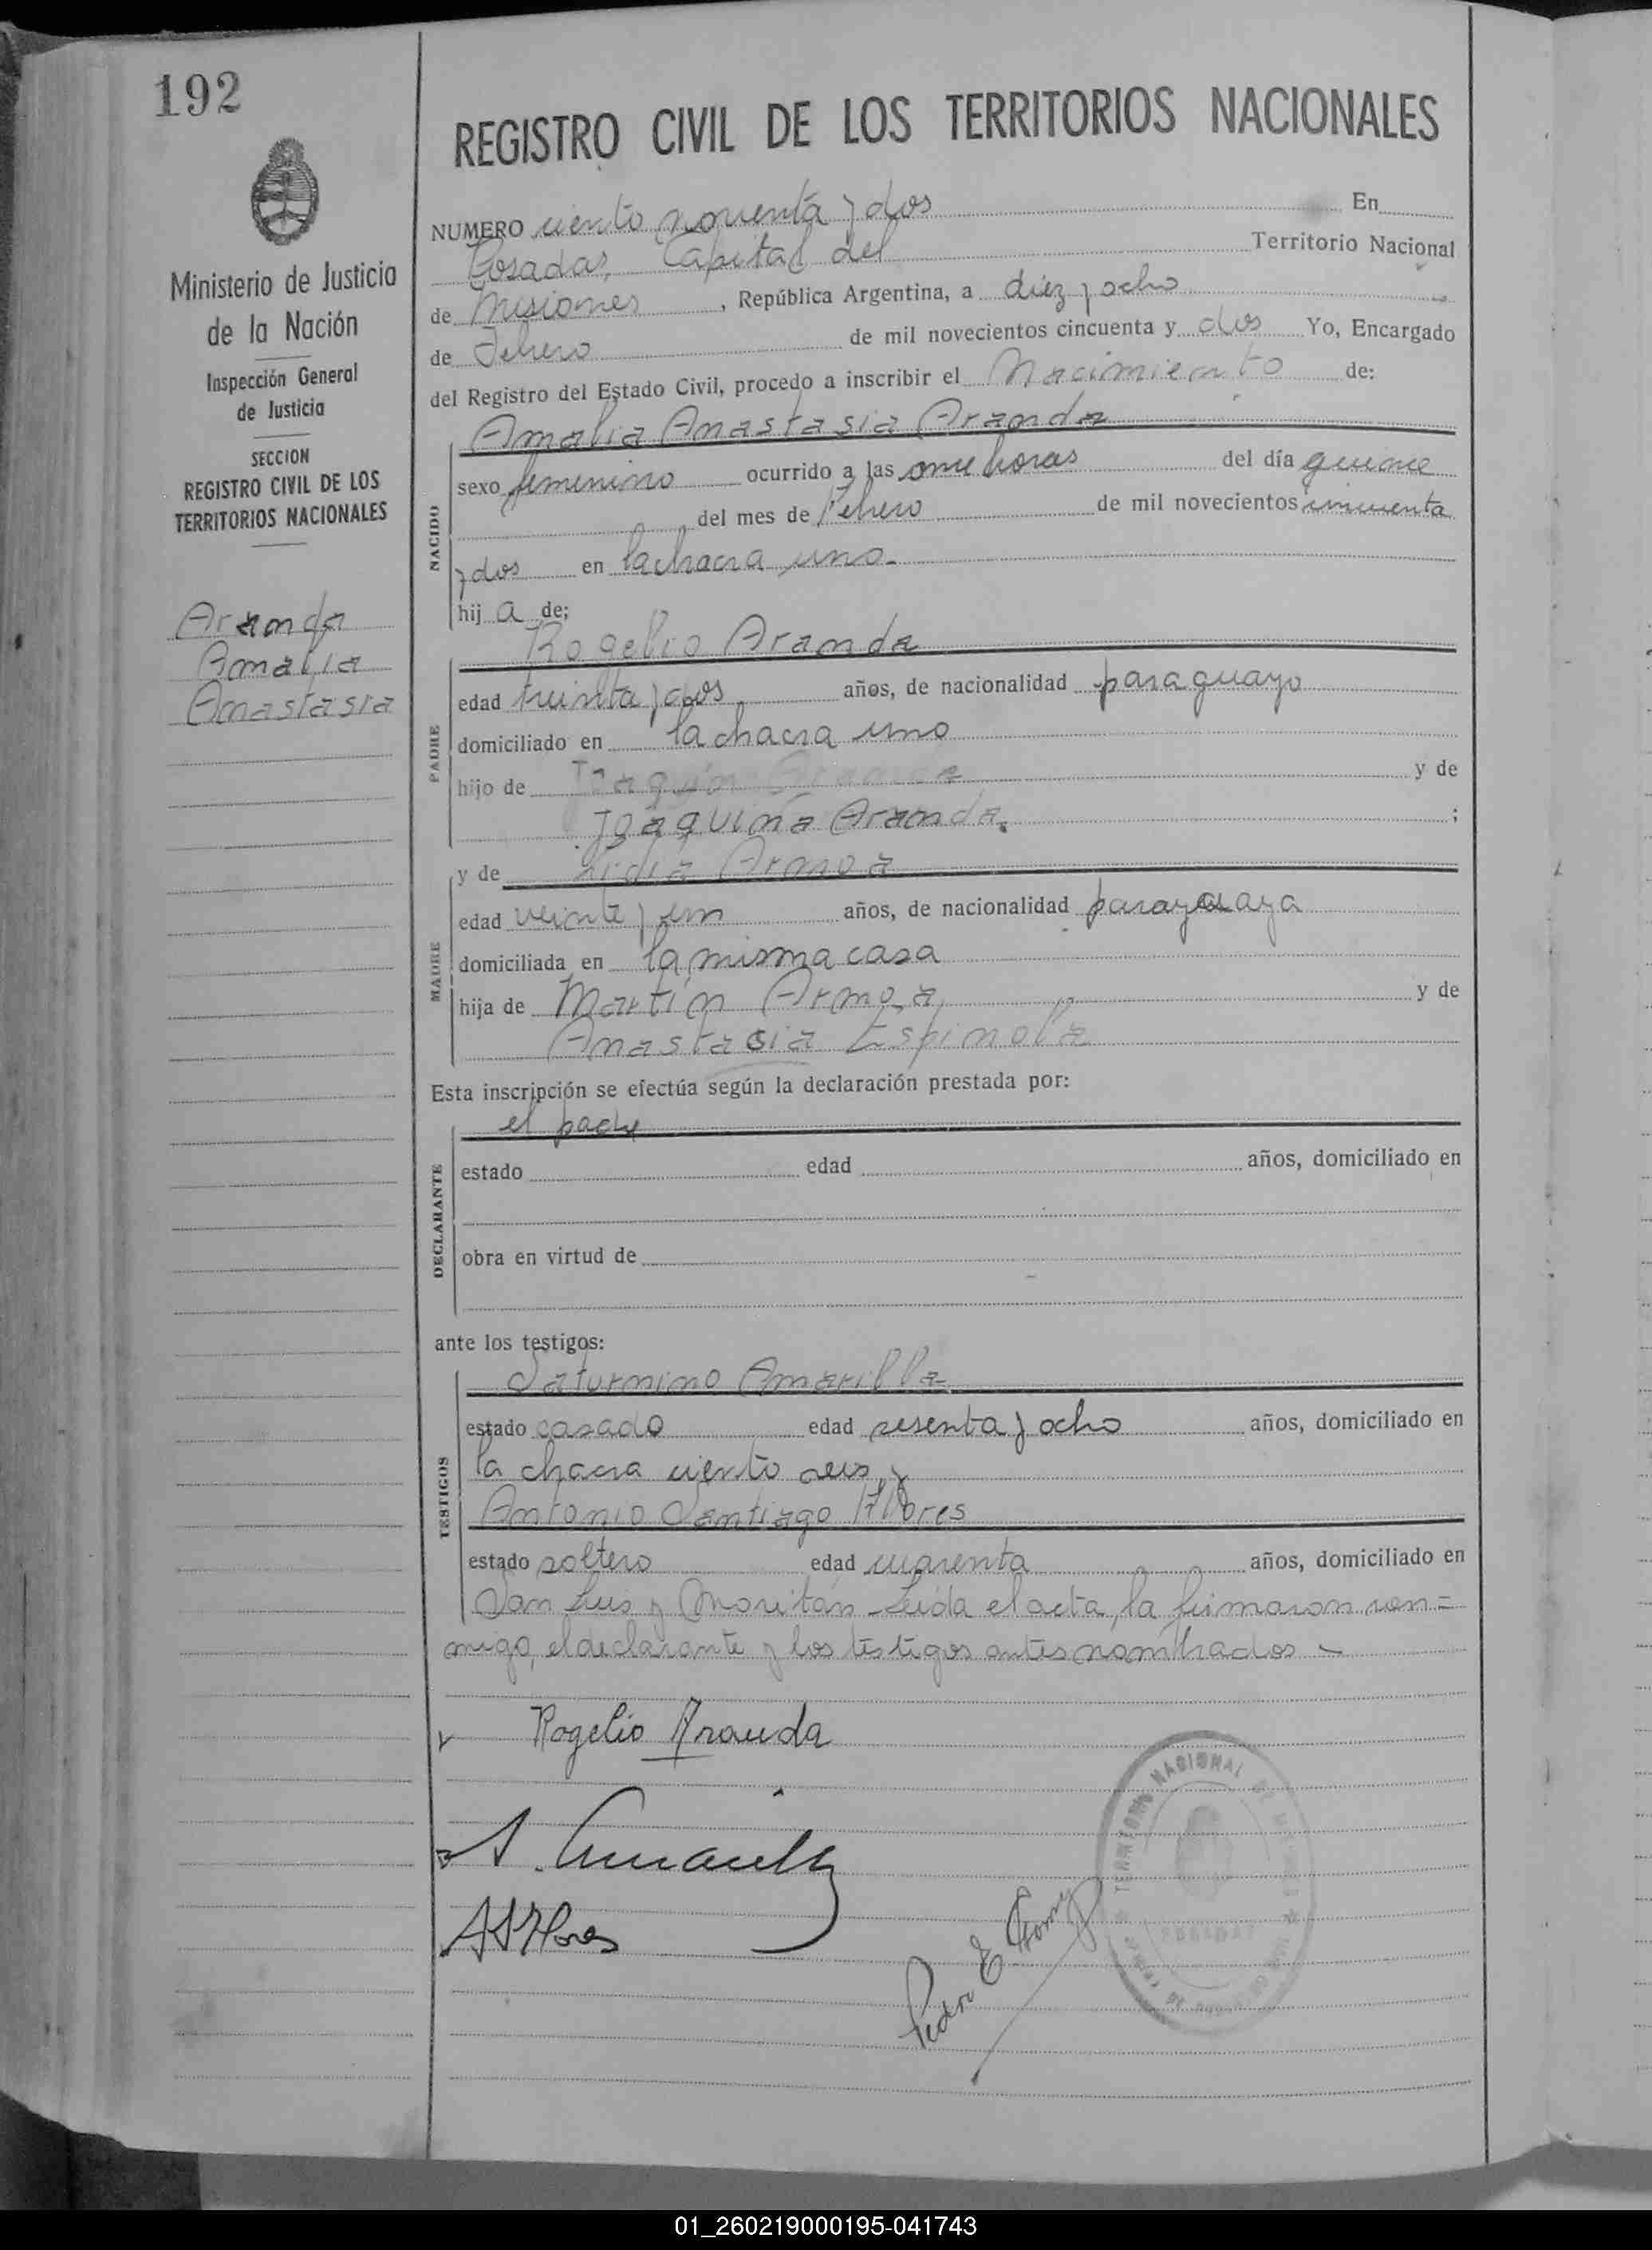 192
REGISTRO CIVIL DE LOS TERRITORIOS NACIONALES
Ministerio de Justicia
de la Nación
Inspección General
de Justicia
SECCION
REGISTRO CIVIL DE LOS
TERRITORIOS NACIONALES
Aranda
Amalia
Anastasia
NUMERO ciento noventa y dos En
Posadas, Capital del Territorio Nacional
de Misiones, República Argentina, a diez y ocho
de Febrero de mil novecientos cincuenta y dos Yo, Encargado
del Registro del Estado Civil, procedo a inscribir el Nacimiento de:
NACIDO
Amalia Anastasia Aranda
sexo femenino ocurrido a las once horas del día quince
del mes de Febrero de mil novecientos cincuenta
y dos en la chacra uno.
hij a de;
PADRE
Rogelio Aranda
edad treinta y dos años, de nacionalidad paraguayo
domiciliado en la chacra uno
hijo de y de
Joaquina Aranda. ;
MADRE
y de Lidia Armoa
edad veinte y un años, de nacionalidad paraguaya
domiciliada en la misma casa
hija de Martín Armoa y de
Anastasia Espinola
Esta inscripción se efectúa según la declaración prestada por:
DECLARANTE
el padre
estado edad años, domiciliado en
obra en virtud de
ante los testigos:
TESTIGOS
Saturnino Amarilla
estado casado edad sesenta y ocho años, domiciliado en
la chacra ciento seis, y
Antonio Santiago Flores
estado soltero edad cuarenta años, domiciliado en
San Luis y Moritán Leida el acta, la firmaron con=
migo, el declarante y los testigos antes nombrados -
Rogelio Aranda
S. Amarilla
A S Flores
Pedro E
TERRITORIO NACIONAL DE MISIONES
POSADAS
01_260219000195-041743